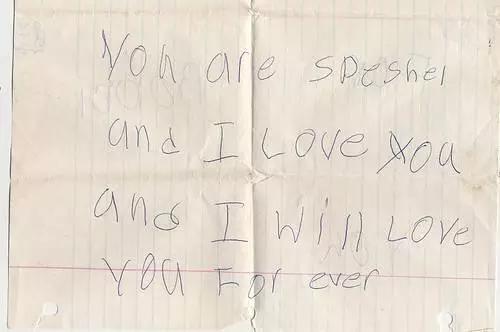 You are speshel
and I Love you
and I will Love
you For ever